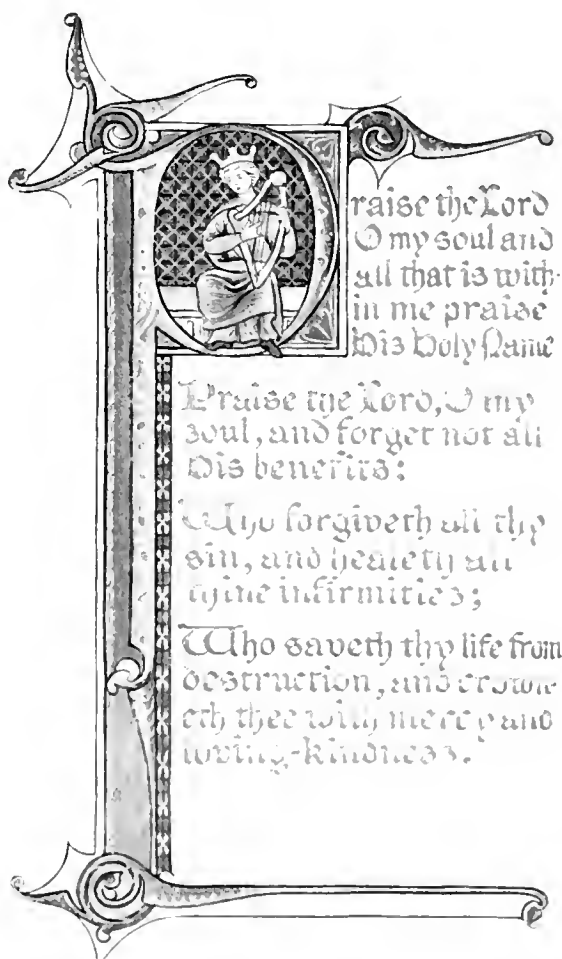 Praise the Lord
O my soul and
all that is with-
in me praise
His Holy Name
Praise the Lord, O my
soul, and forget not all
His benefits:
Who forgiveth all thy
sin, and healeth all
thine infirmities;
Who saveth thy life from
destruction, and crown-
eth thee with mercy and
loving-kindness.